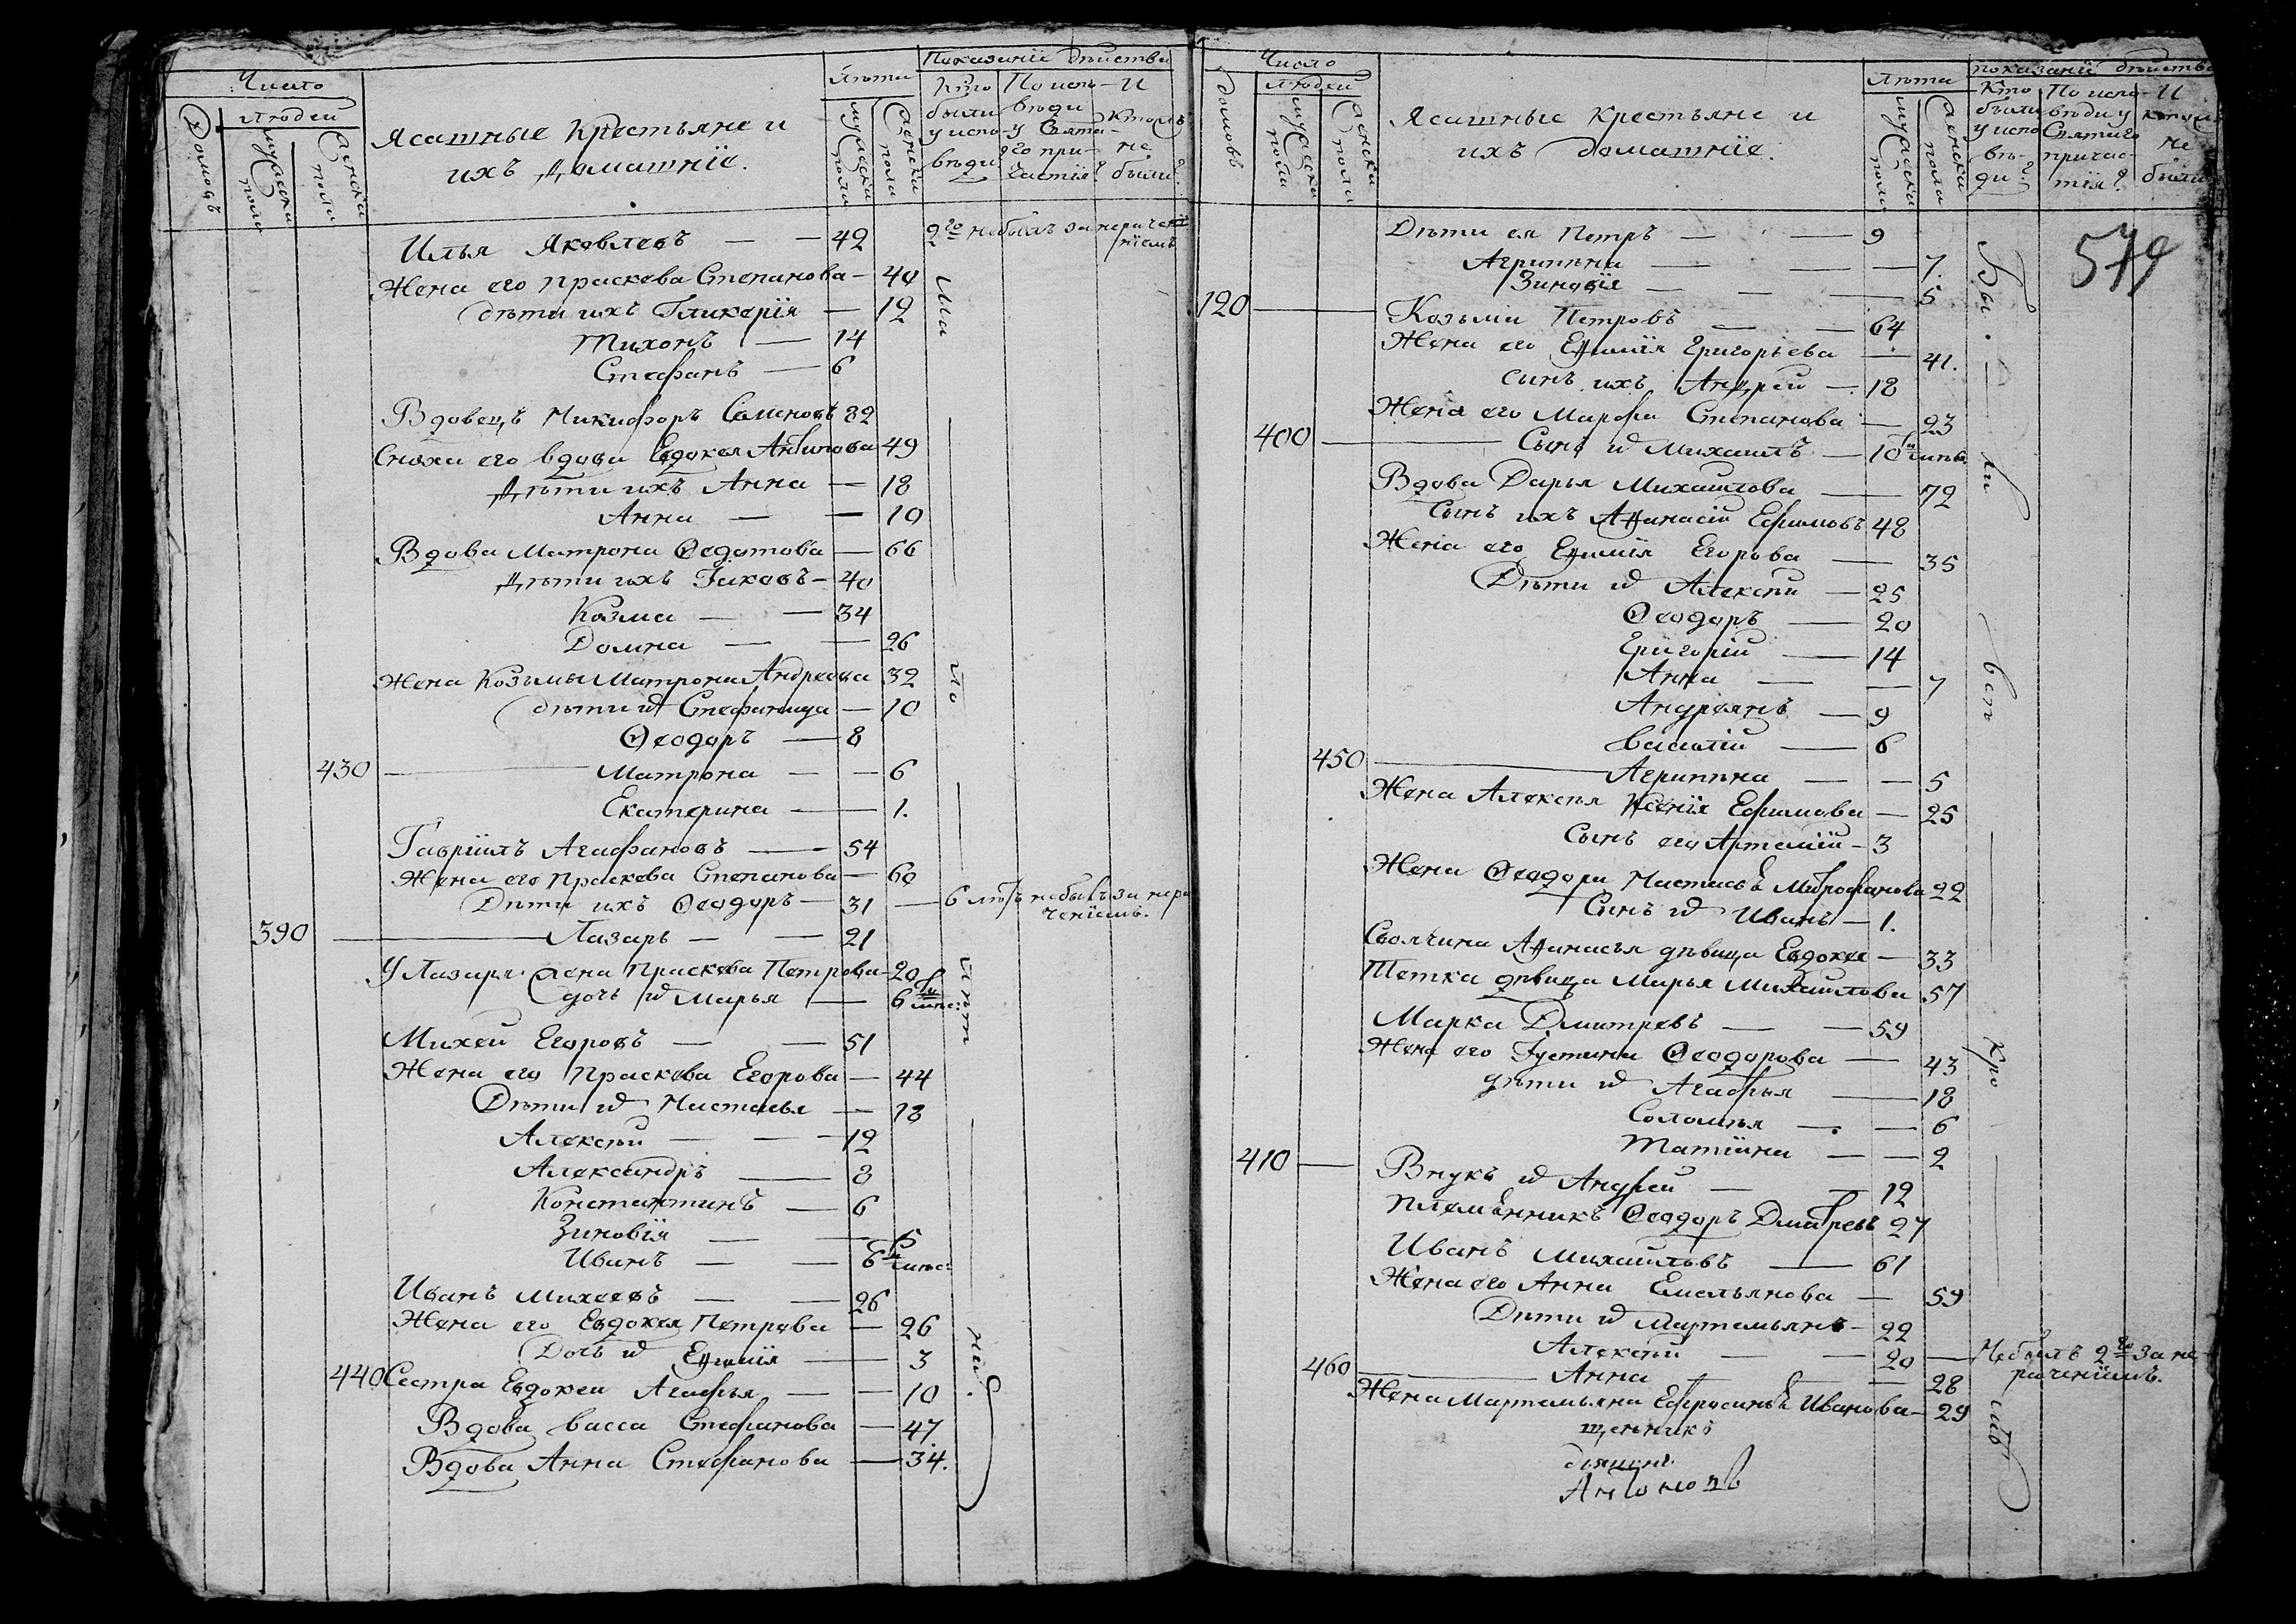 Число
Людей
Домовъ
мужеска пола
женска пола
Ясашные Крестьяне и
ихъ Домашнїе.
Лѣта
мужеска пола
женска пола
Показанїе дѣйства
Кто были у исповѣди?
По исповѣди у Святаго причастїя?
И кто ... не были?
Илья Яковлевъ — 42 2го небылъ за нераченїемъ
Жена его Праскева Степанова — 40
дѣти ихъ Гликерїя — 12
Тихонъ — 14
Стефанъ — 6
Вдовецъ Никифоръ Семеновъ 82
Сноха его вдова Евдокея Антипова 49
Дѣти ихъ Анна — 18
Анна — 10
Вдова Матрона Ѳедотова — 66
Дѣти ихъ Іаковъ — 40
Козма — 34
Домна — 26
Жена Козьмы Матрона Андреева 32
дѣти их Стефанида — 10
Ѳеодоръ — 8
430 — Матрона — 6
Екатерина — 1.
Гаврїилъ Агафановъ — 54
Жена его Праскева Степанова — 60
Дѣти ихъ Ѳеодоръ — 31 — 6 лѣтъ небылъ за нераченїемъ.
390 — Лазарь — 21
У Лазаря жена Праскева Петрова — 20
дочь их Марья — 6 ти мѣс:
Михей Егоровъ — 51
Жена его Праскева Егорова — 44
Дѣти их Настасья — 18
Алексѣй — 12
Александръ — 8
Константинъ — 6
Зиновїя — 5
Иванъ — 6 ти мѣс:
Иванъ Михеевъ — 26
Жена его Евдокея Петрова — 26
Дочь их Еѵѳимїя — 3
440 Сестра Евдокеи Агафья — 10
Вдова Васса Стефанова — 47
Вдова Анна Стефанова — 34.
Число
Людей
домовъ
мужеска пола
женска пола
Ясашные Крестьяне и
ихъ Домашнїе.
Лѣта
мужеска пола
женска пола
показанїе дѣйства
Кто были у исповѣди?
По исповѣди у Святаго причастїя?
И кто ... не были
579
Дѣти ея Петръ — 9
Агрипѣна — 7.
Зиновїя — 5
120 — Козьма Петровъ — 64
Жена его Еѵѳимїя Григорьева — 41.
сынъ ихъ Андрей — 18
Жена его Марѳа Степанова — 23
400 — Сынъ их Михаилъ — 10 ти мѣс.
Вдова Дарья Михаилова — 72
Сынъ ихъ Аѳанасїй Ефимовъ 48
Жена его Еѵѳимїя Егорова — 35
Дѣти их Алексѣй — 25
Ѳеодоръ — 20
Григорїй — 14
Анна — 7
Андреянъ — 9
Василїй — 6
450 — Агрипѣна — 5
Жена Алексѣя Ксенїя Ефимова — 25
Сынъ его Артемїй — 3
Жена Ѳеодора Настасья Митрофанова 22
Сынъ их Иванъ — 1.
Своячина Аѳанасья дѣвица Евдокея — 33
Тетка дѣвица Марья Михаилова 57
Марка Дмитревъ — 59
Жена его Іустина Ѳеодорова — 43
дѣти их Агафья — 18
Соломея — 6
Татїана — 2
410 — Внукъ их Андрей — 12
Племянникъ Ѳеодоръ Дмитревъ 27
Иванъ Михаиловъ — 61
Жена его Анна Емельянова — 59
Дѣти их Мартемьянъ — 22
Алексѣй — 20 — Небылъ 2го за нераченїемъ.
460 — Анна — 28
Жена Мартемьяна Ефросинья Иванова — 29
щенникъ
дїяконъ
Антоновъ